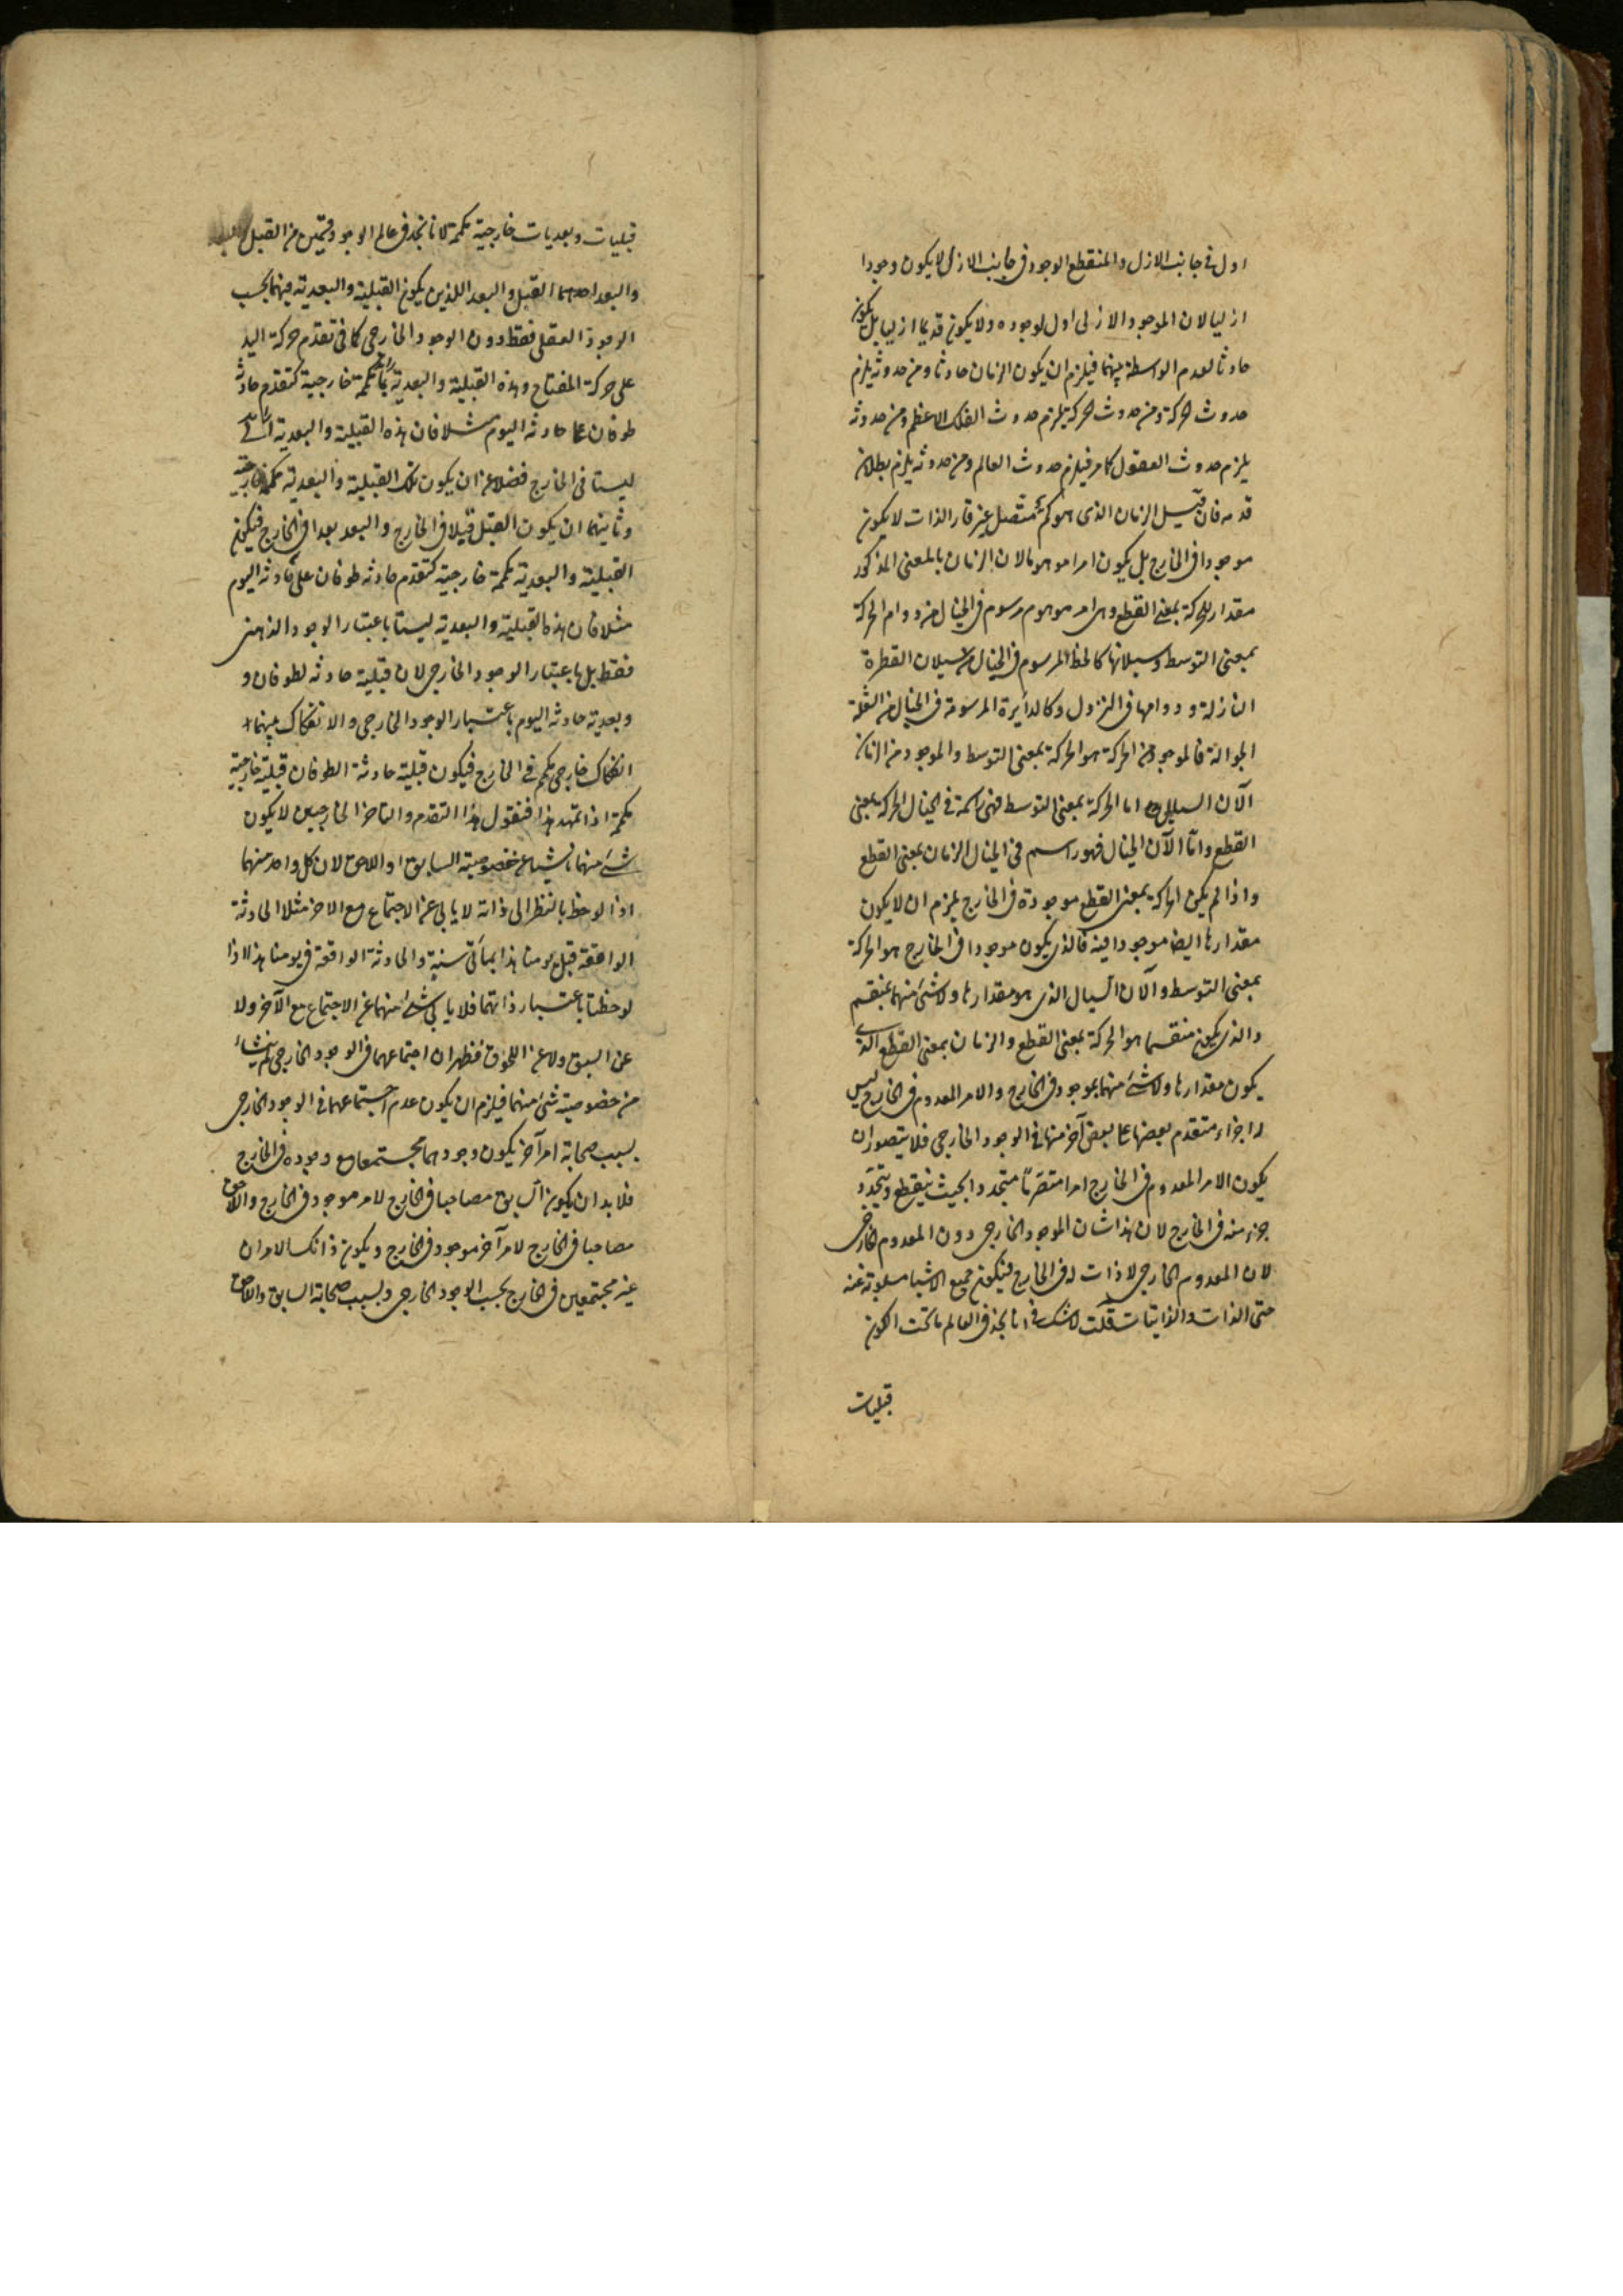 اول فى جانب الازل والمنقطع الوجود فى جانب الازل لا يكون وجودا
ازليا لان الموجود الازلى لا اول لوجوده ولا يكون قديما ازليا بل يكون
حادثا لعدم الواسطة بينهما فيلزم ان يكون الزمان حادثا ومن حدوثه يلزم
حدوث الحركة ومن حدوث الحركة يلزم حدوث الفلك الاعظم ومن حدوثه
يلزم حدوث العقول كامر فيلزم حدوث العالم ومن حدوثه يلزم بطلان
قدمه فان قيل الزمان الذى هو كم متصل غير قار الذات لا يكون
موجودا فى الخارج بل يكون امرا موهوما لان الزمان بالمعنى المذكور
مقدار للحركة بمعنى القطع وهى امر موهوم مرسوم فى الخيال من دوام الحركة
بمعنى التوسط وسيلانها كالخط المرسوم فى الخيال من سيلان القطرة
النازلة ودوامها فى النزول وكالدائرة المرسومة فى الخيال من الشعلة
الجوالة فالموجود من الحركة هو الحركة بمعنى التوسط والموجود من الزمان
الآن السيال اما الحركة بمعنى التوسط فهى راسمة فى الخيال الحركة بمعنى
القطع واما الآن الخيال فهو راسم فى الخيال الزمان بمعنى القطع
واذا لم يكن الحركة بمعنى القطع موجودة فى الخارج يلزم ان لا يكون
مقدارها ايضا موجودا فيه فالذى يكون موجودا فى الخارج هو الحركة
بمعنى التوسط والآن السيال الذى هو مقدارها ولا شئ منهما بمنقسم
والذى يكون منقسما هو الحركة بمعنى القطع والزمان بمعنى القطع الذى
يكون مقدارها ولا شئ منهما بموجود فى الخارج والامر المعدوم فى الخارج ليس
له اجزاء متقدم بعضها على بعض آخر منها فى الوجود الخارجى فلا يتصور ان
يكون الامر المعدوم فى الخارج امرا متصرما متجددا بحيث ينقطع ويتجدد
جزء منه فى الخارج لان هذا شان الموجود الخارجى دون المعدوم الخارجى
لان المعدوم الخارجى لا ذات له فى الخارج فيكون جميع الاشيا مسلوبة عنه
حتى الذات والذاتيات قلت لا شك فى انا نجد فى العالم ما تحت الكون
قبليات
قبليات وبعديات خارجية بكمة لانا نجد فى عالم الوجود قسمين من القبل
والبعد احدهما القبل والبعد اللذين يكون القبلية والبعدية فيهما بحسب
الوجود العقلى فقط دون الوجود الخارجى كما فى تقدم حركة اليد
على حركة المفتاح وهذه القبلية والبعدية بكمة خارجية كتقدم حادثة
طوفان على حادثة اليوم مثلا فان هذه القبلية والبعدية
ليستا فى الخارج فضلا عن ان يكون تلك القبلية والبعدية بكمة خارجية
وثانيهما ان يكون القبل قبلا فى الخارج والبعد بعدا فى الخارج فيكون
القبلية والبعدية بكمة خارجية كتقدم حادثة طوفان على حادثة اليوم
مثلا فان هذه القبلية والبعدية ليستا باعتبار الوجود الذهنى
فقط بل باعتبار الوجود الخارجى لان قبلية حادثة لطوفان و
وبعدية حادثة اليوم باعتبار الوجود الخارجى والانفكاك بينهما
انفكاك خارجى بكم فى الخارج فيكون قبلية حادثة الطوفان قبلية خارجية
بكمة اذا تمهد هذا فنقول هذا التقدم والتاخر الخارجيين لا يكون
شئ منهما ناشيا عن خصوصية السابق او اللاحق لان كل واحد منهما
اذا لوحظ بالنظر الى ذاته لا يابى عن الاجتماع مع الاخر مثلا الحادثة
الواقعة قبل يومنا هذا بمأتى سنة والحادثة الواقعة فى يومنا هذا اذا
لوحظتا باعتبار ذاتهما فلا يابى شئ منهما عن الاجتماع مع الآخر ولا
عن السبق ولا عن اللحوق فظهر ان اجتماعهما فى الوجود الخارجى لم ينشاء
من خصوصية شئ منهما فيلزم ان يكون عدم اجتماعهما فى الوجود الخارجى
بسبب صحابة امر آخر يكون وجودهما مجتمعا مع وجوده فى الخارج
فلا بد ان يكون السابق مصاحبا فى الخارج لامر موجود فى الخارج واللاحق
مصاحبا فى الخارج لامر آخر موجود فى الخارج ويكون ذانك الامران
غير مجتمعين فى الخارج بحسب الوجود الخارجى وبسبب صحابة السابق واللاحق